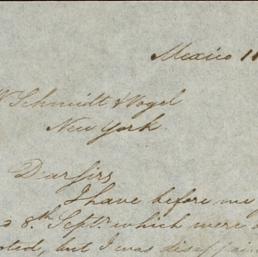 Mexico 11
Schmidt & Vogel
New York
Dear Sirs
I have before me
8th Sept. which were
but I was disappoin